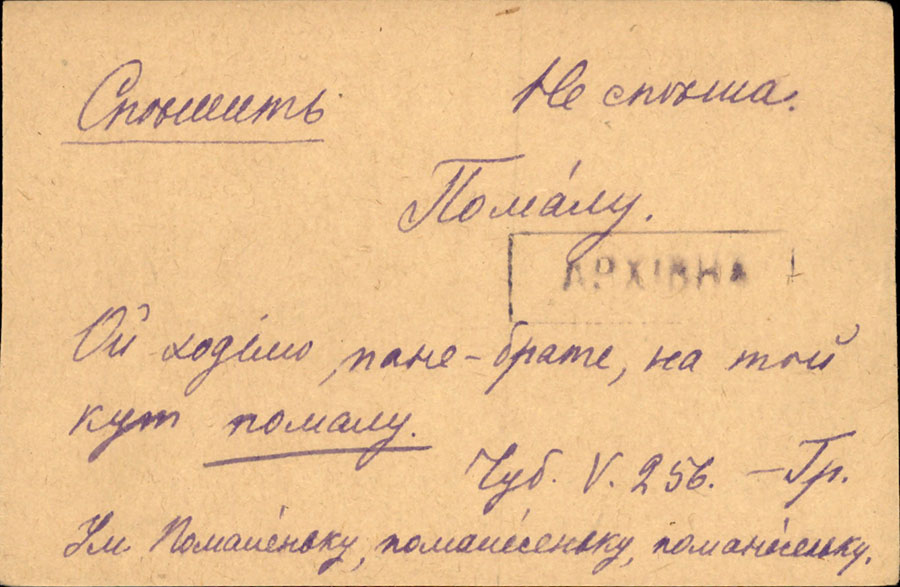 Спѣшить Не спѣша.
Пома́лу.
АРХІВНА
Ой ходімо, пане-брате, на той
кут помалу.
Чуб. V. 256. – Гр.
Ум. Помале́ньку, помале́сеньку,